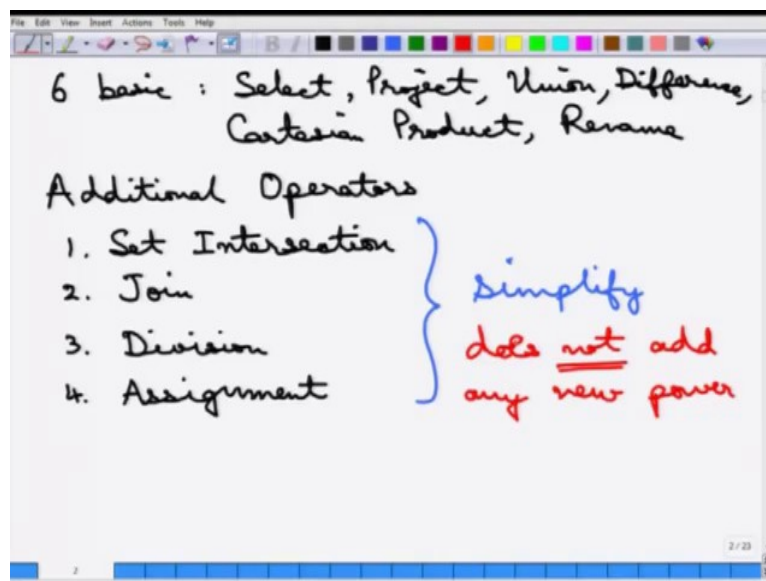 File Edit View Insert Actions Tools Help
6 basic : Select, Project, Union, Difference,
Cartesian Product, Rename
Additional Operators
1. Set Intersection
2. Join
3. Division
4. Assignment
Simplify
does not add
any new power
2/23
2